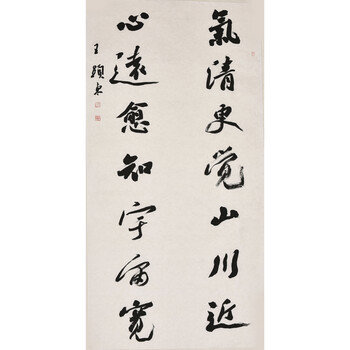 氣清更觉山川近
心遠愈知宇宙寬
王頌东